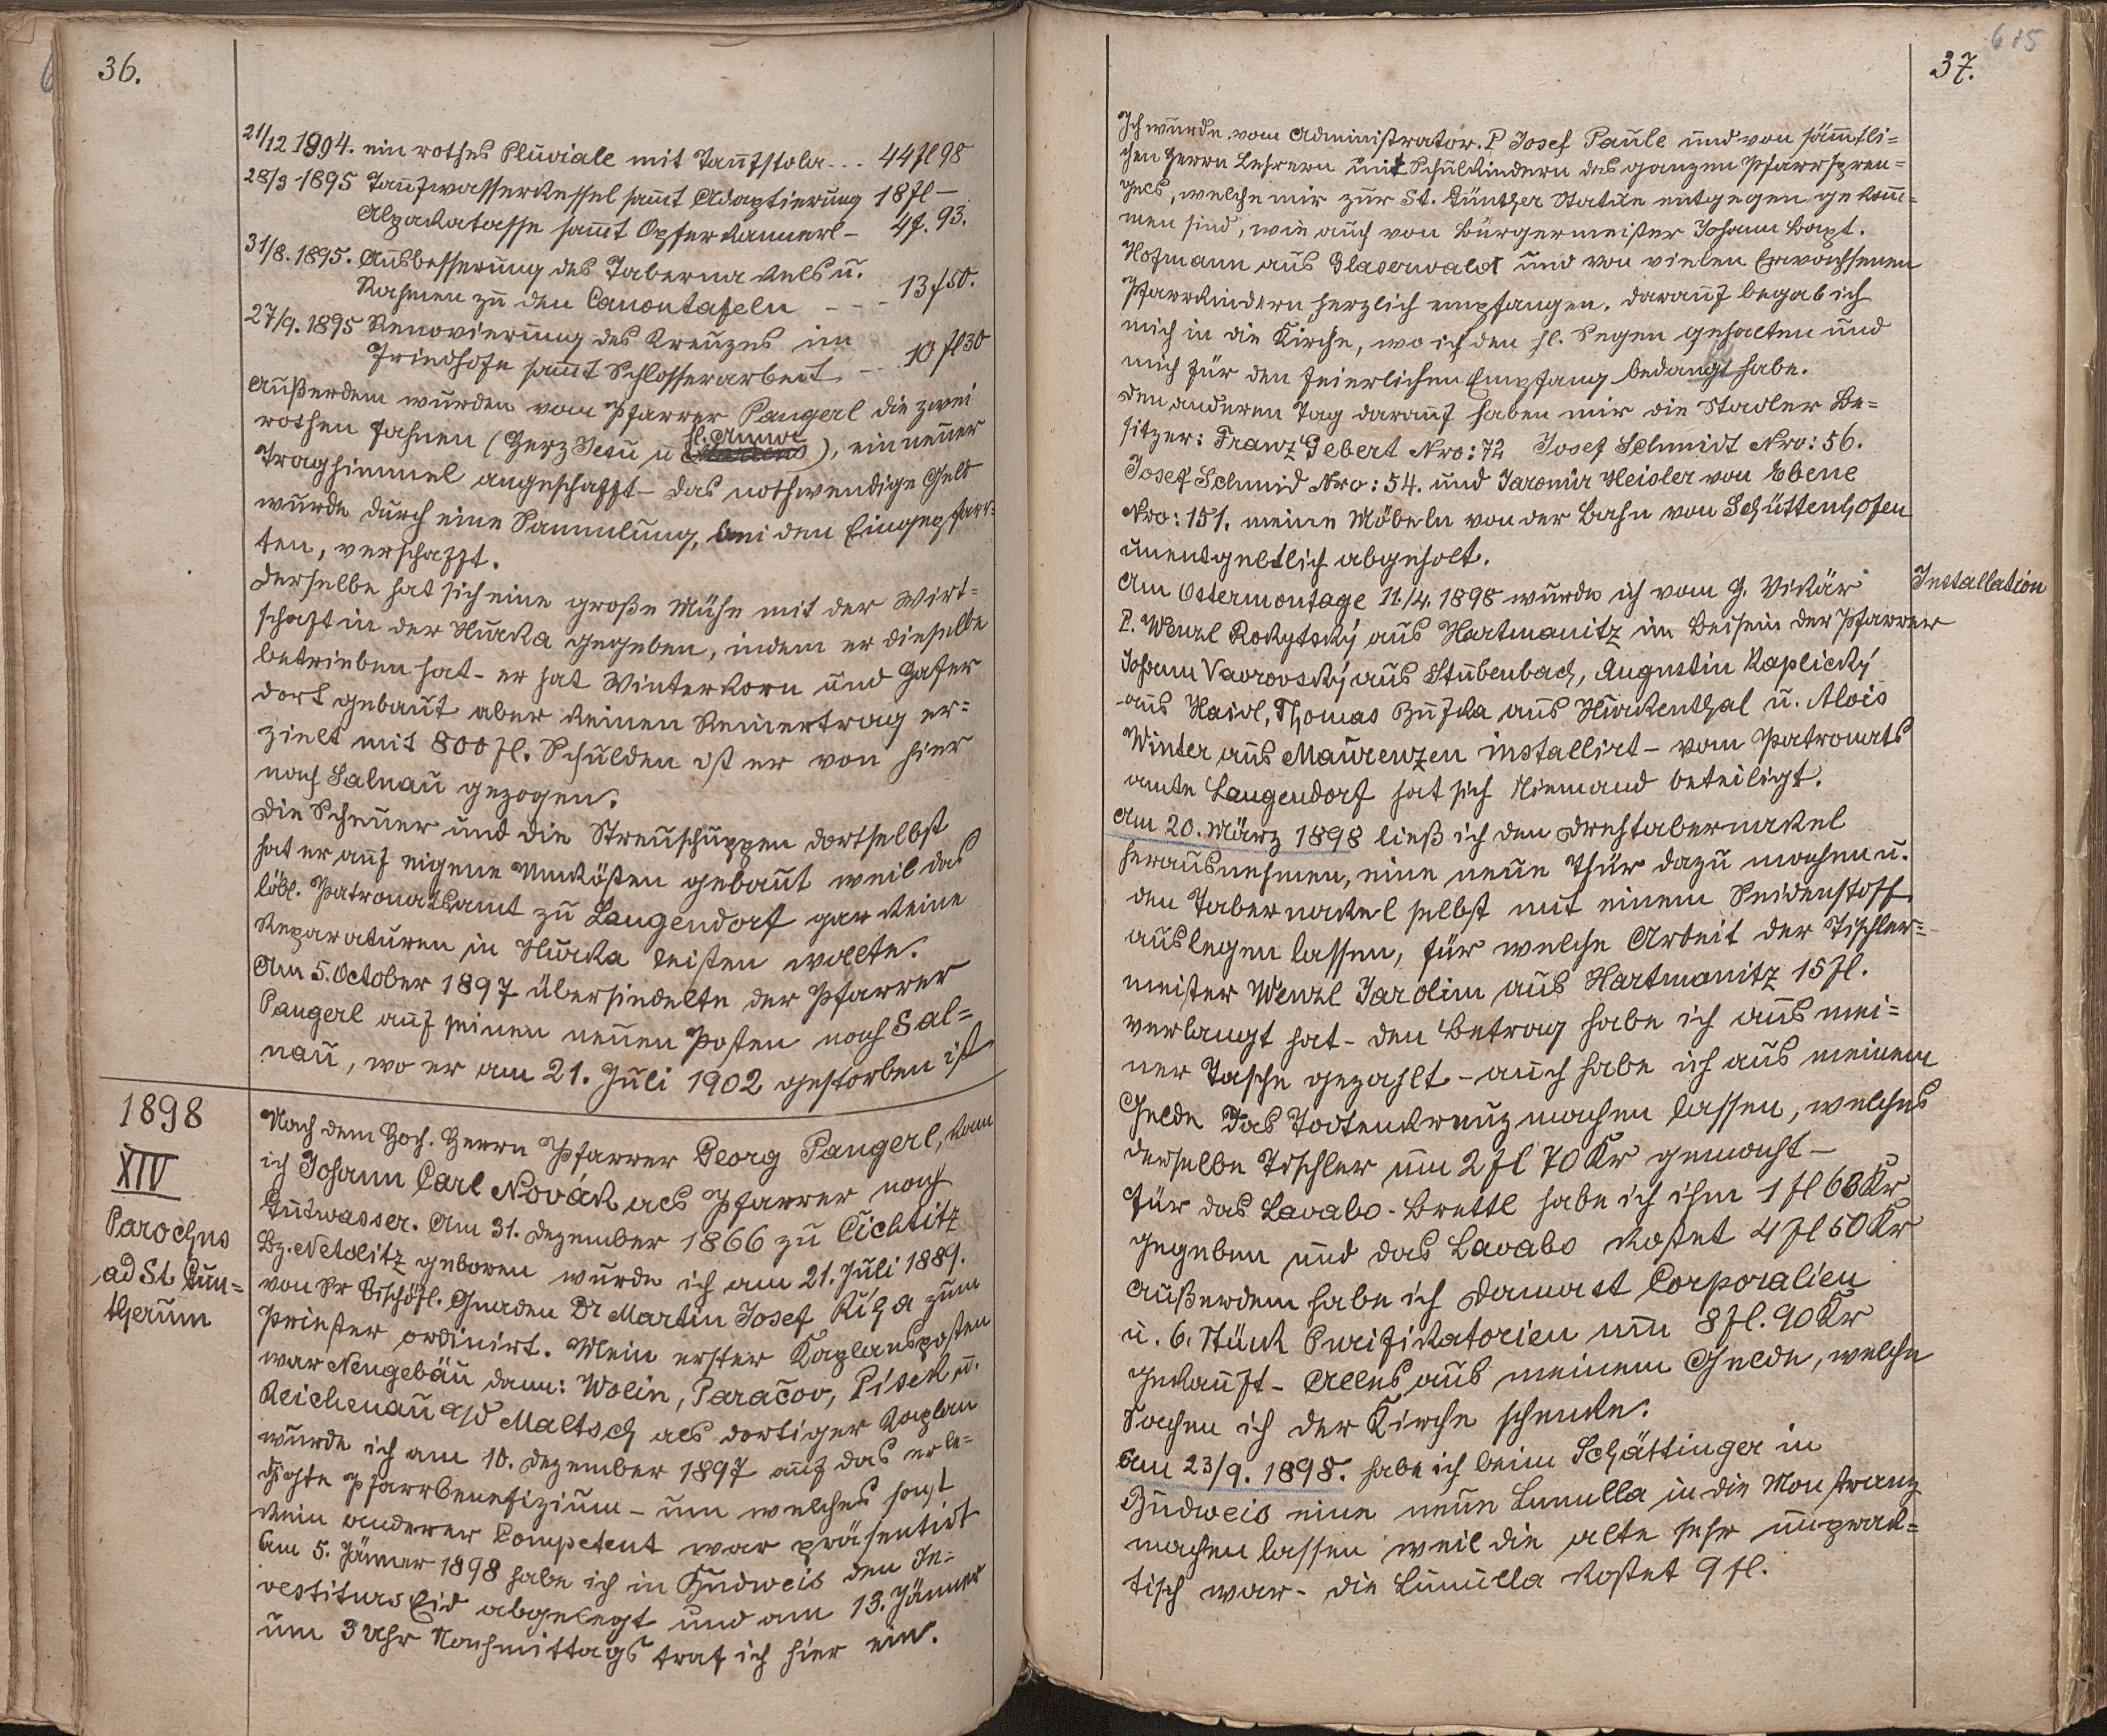 36.
21/12 1894. ein rothes Pluviale mit Taufstola - - - 44 fl 98
28/3 1895 Taufwasserkessel sammt Adaptierung 18 fl —
Alpakatasse sammt Opferkannerl — 4 f. 93.
31/8. 1895. Ausbesserung des Tabernakels u.
Rahmen zu den Canontafeln - - - 13 f 50.
27/9. 1895 Renovierung des Kreuzes im
Friedhofe sammt Schlosserarbeit - - 10 fl 30
Außerdem wurden vom Pfarrer Pangerl die zwei
rothen Fahnen (Herz Jesu u hl. Anna), ein neuer
Traghimmel angeschafft — das nothwendige Geld
wurde durch eine Sammlung, bei den Eingepfarr-
ten, verschafft.
Derselbe hat sich eine große Mühe mit der Wirt=
schaft in der Hurka gegeben, indem er dieselbe
betrieben hat - er hat Winterkorn und Hafer
dort gebaut aber keinen Reinertrag er=
zielt mit 800 fl. Schulden ist er von hier
nach Salnau gezogen.
Die Scheuer und die Streuschuppen dortselbst
hat er auf eigene Unkösten gebaut weil das
löbl. Patronatsamt zu Langendorf gar keine
Reparaturen in Hurka leisten wollte.
Am 5. October 1897 übersiedelte der Pfarrer
Pangerl auf seinen neuen Posten nach Sal=
nau, wo er am 21. Juli 1902 gestorben ist
1898
XIV
Parochus
ad St. Gun=
therum
Nach dem Hoch. Herrn Pfarrer Georg Pangerl, kam
ich Johann Carl Novák als Pfarrer nach
Gutwasser. Am 31. Dezember 1866 zu Čichtitz
Bz. Netolitz geboren wurde ich am 21. Juli 1889.
von Sr Bischöfl. Gnaden Dr Martin Josef Říha zum
Priester ordinirt. Mein erster Kaplansposten
war Neugebäu dann: Wolin, Paračov, Pisek u.
Reichenau a/d Maltsch als dortiger Kaplan
wurde ich am 10. Dezember 1897 auf das erle=
digte Pfarrbenefizium - um welches sonst
kein anderer Competent war präsentirt
Am 5. Jänner 1898 habe ich in Budweis den In=
vestiturs Eid abgelegt und am 13. Jänner
um 3 Uhr Nachmittags traf ich hier ein.
615
37.
Ich wurde vom Administrator. P Josef Paule und von sämtli=
chen Herrn Lehrern mit Schulkindern des ganzen Pfarrspren=
gels, welche mir zur St. Günther Statue entgegen gekom=
men sind, wie auch von Bürgermeister Johann Bapt.
Hofmann aus Glaserwald und von vielen Erwachsenen
Pfarrkindern herzlich empfangen. Darauf begab ich
mich in die Kirche, wo ich den hl. Segen gehalten und
mich für den feierlichen Empfang bedangt habe.
Den anderen Tag darauf haben mir die Stadler Be=
sitzer: Franz Gebert Nro: 72 Josef Schmidt Nro: 56.
Josef Schmid Nro: 54. und Jaromir Heisler von Ebene
Nro: 151. meine Möbeln von der Bahn von Schüttenhofen
unentgeltlich abgeholt.
Am Ostermontage 11./4. 1898 wurde ich vom H. Vikär
Installation
P. Wenzl Rokytský aus Hartmanitz im Beisein der Pfarrer
Johann Vavrovský aus Stubenbach, Augustin Kaplický
aus Haidl, Thomas Zuska aus Hurkenthal u. Alois
Winter aus Maurenzen installirt — vom Patronats
amte Langendorf hat sich Niemand beteiligt.
Am 20. März 1898 ließ ich den Drehtabernakel
herausnehmen, eine neue Thür dazu machen u.
den Tabernakel selbst mit einem Seidenstoff
auslegen lassen, für welche Arbeit der Tischler=
meister Wenzl Jarolim aus Hartmanitz 15 fl.
verlangt hat - den Betrag habe ich aus mei=
ner Tasche gezahlt - auch habe ich aus meinem
Gelde das Todtenkreuz machen lassen, welches
derselbe Tischler um 2 fl 70 Kr gemacht —
Für das Lavabo-Brettl habe ich ihm 1 fl 68 Kr
gegeben und das Lavabo kostet 4 fl 50 Kr
Außerdem habe ich Damast Corporalien
u. 6. Stück Purifikatorien um 8 fl. 90 Kr
gekauft - Alles aus meinem Gelde, welche
Sachen ich der Kirche schenke.
Am 23/9. 1898. habe ich beim Schättinger in
Budweis eine neue Lunulla in die Monstranz
machen lassen weil die alte sehr unprak=
tisch war - die Lunulla kostet 9 fl.